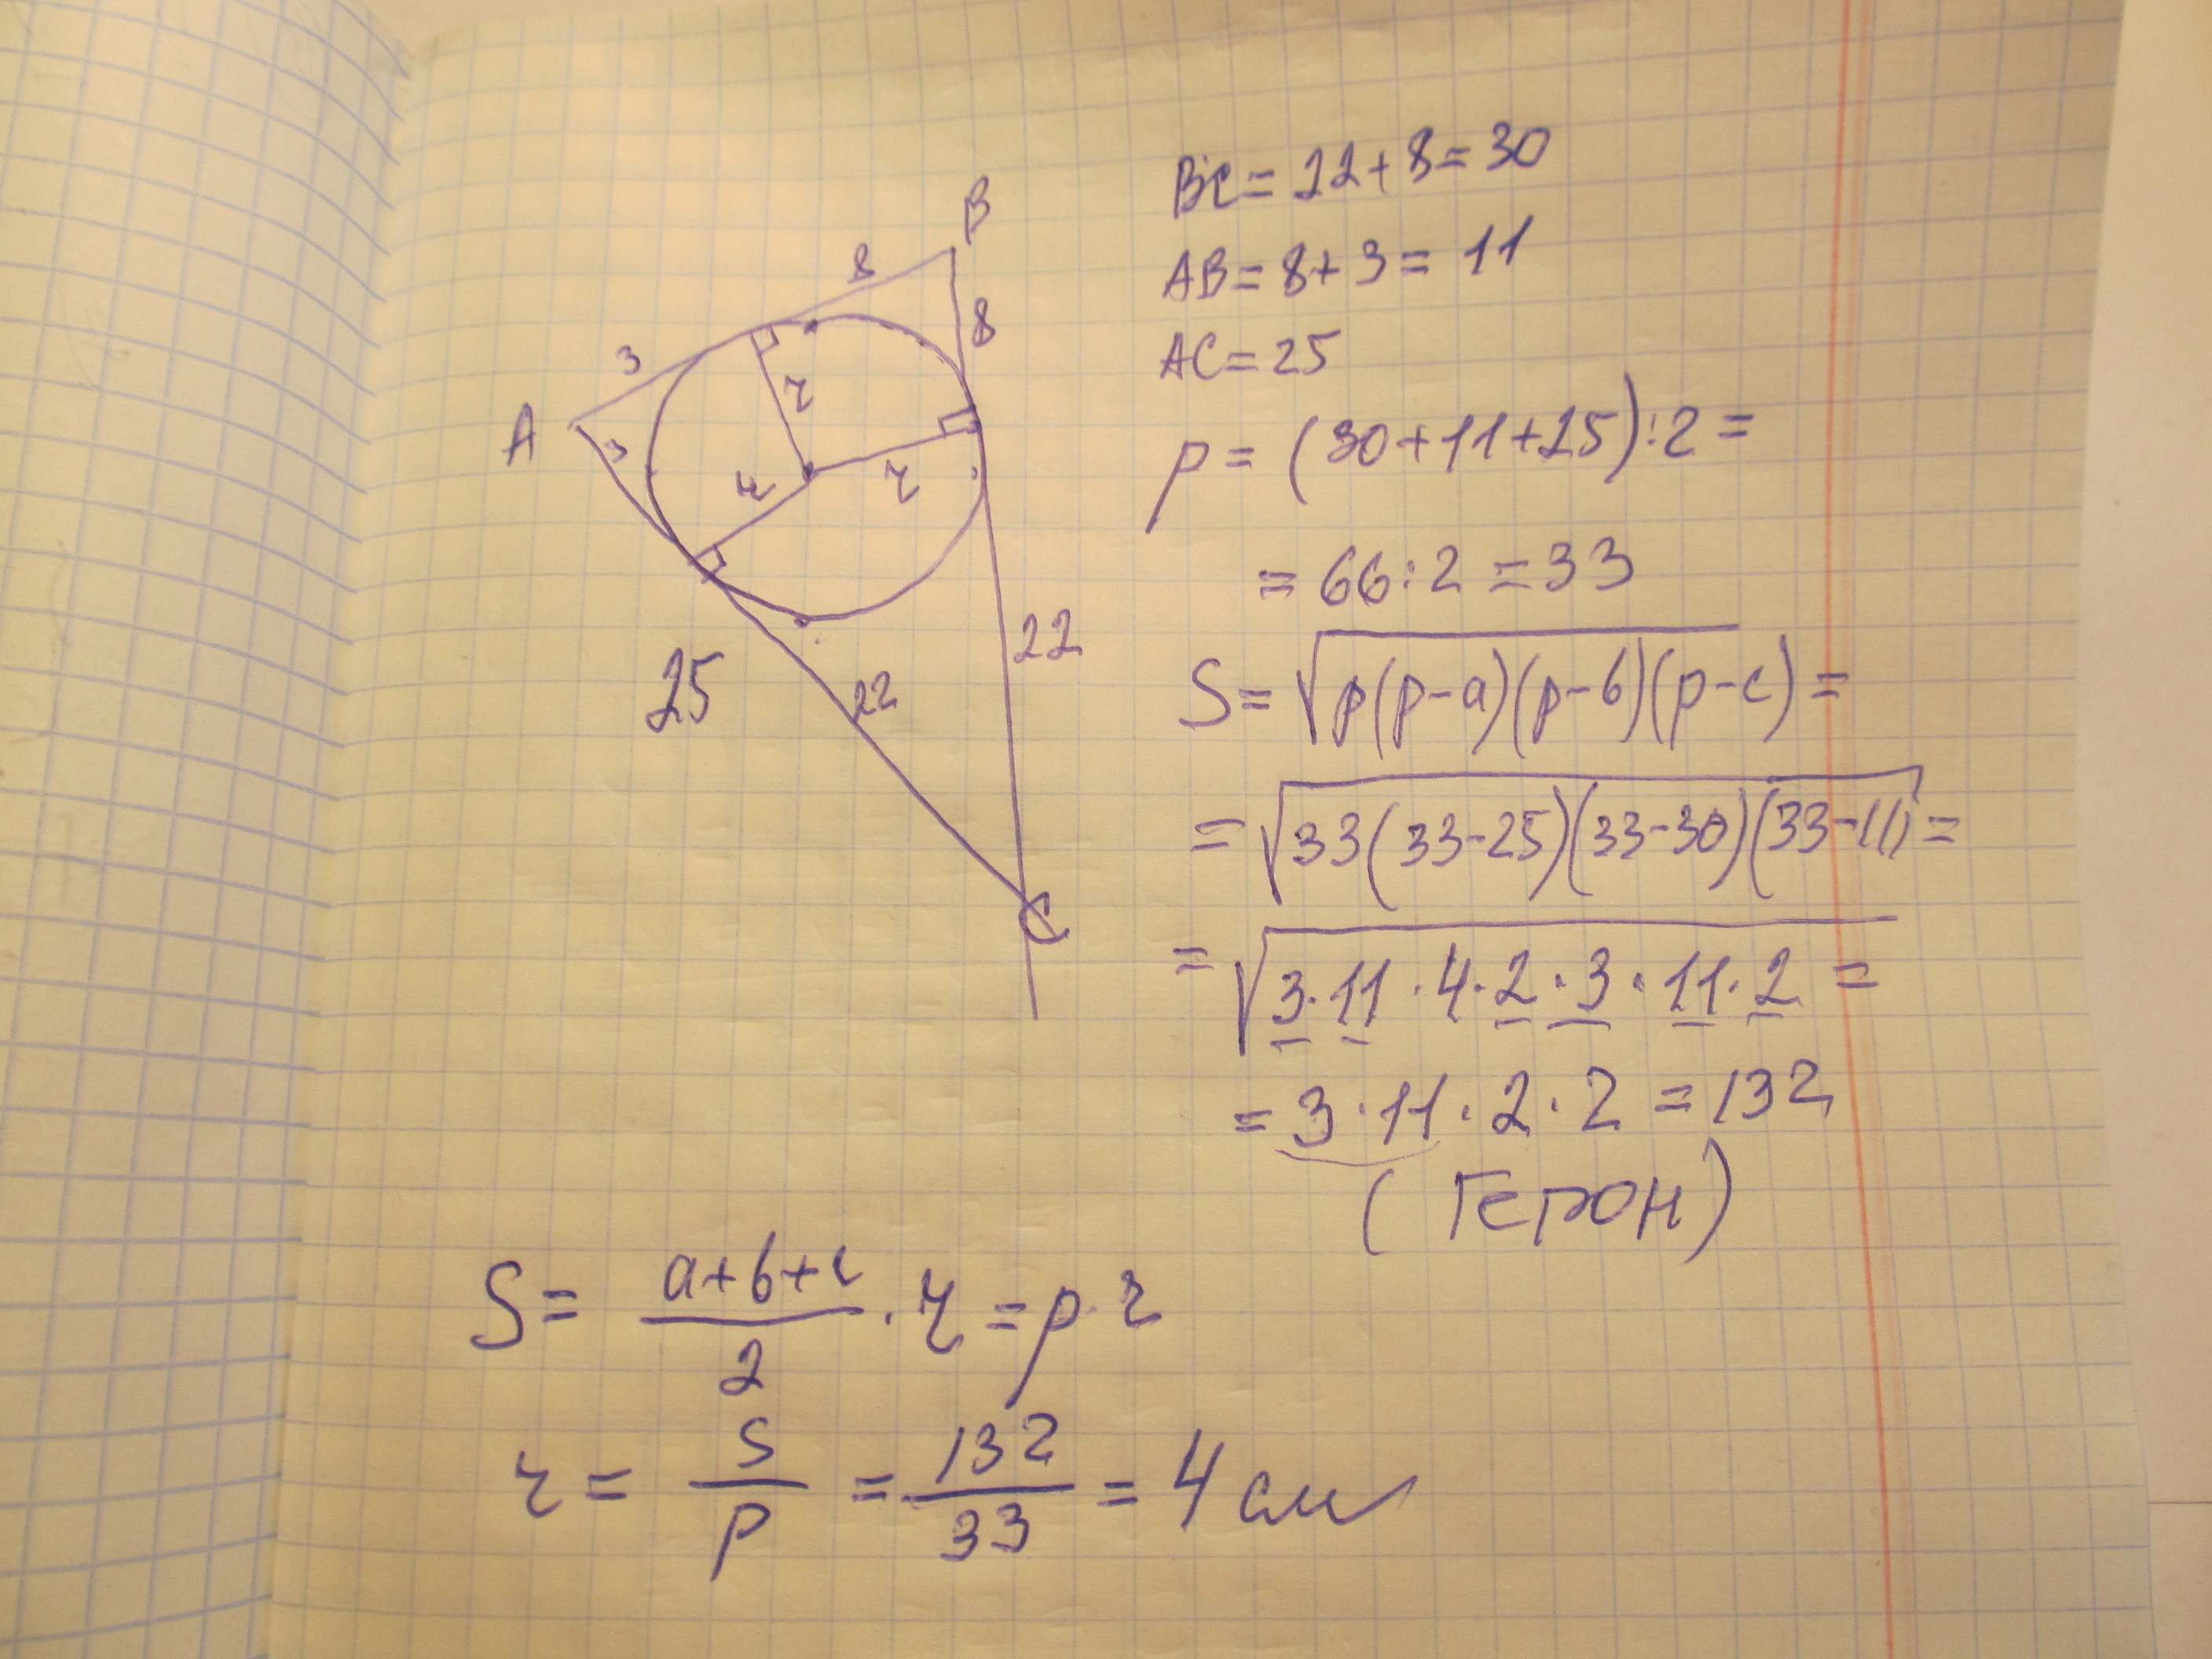 B
8
8
3
A
3
r
r
r
25
22
22
C
BC = 22 + 8 = 30
AB = 8 + 3 = 11
AC = 25
p = (30+11+25):2 =
= 66:2 = 33
S = √p(p-a)(p-b)(p-c) =
= √33(33-25)(33-30)(33-11) =
= √3·11·4·2·3·11·2 =
= 3·11·2·2 = 132
(Герон)
S = (a+b+c)/2 · r = p·r
r = S/p = 132/33 = 4 см